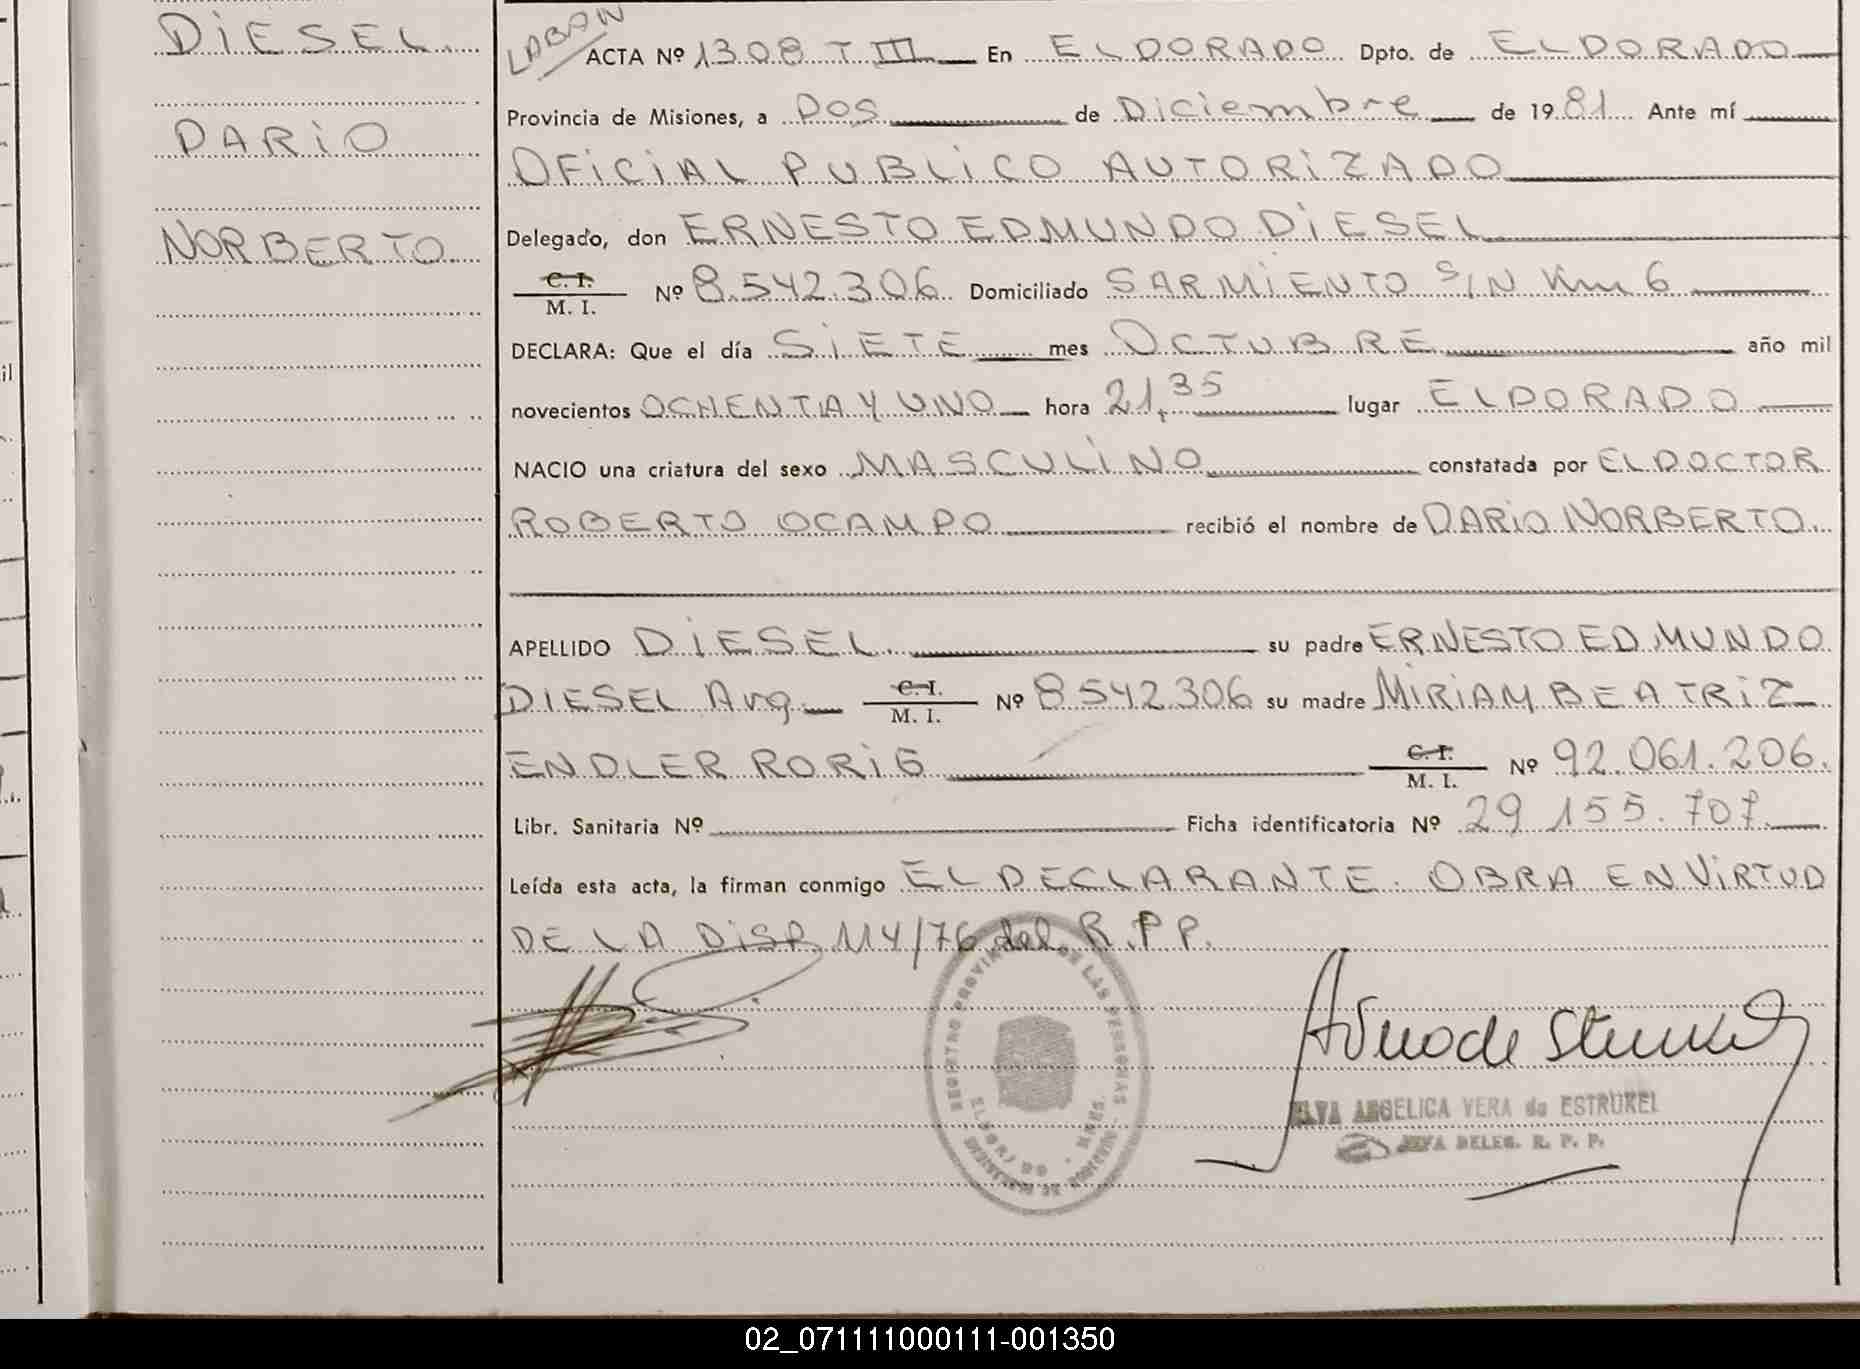 DIESEL
DARIO
NORBERTO
LABON
ACTA Nº 1308 T III En ELDORADO Dpto. de ELDORADO
Provincia de Misiones, a DOS de Diciembre de 1981 Ante mí
OFICIAL PUBLICO AUTORIZADO
Delegado, don ERNESTO EDMUNDO DIESEL
C. I.
M. I. Nº 8.542.306 Domiciliado SARMIENTO S/N Km 6
DECLARA: Que el día SIETE mes OCTUBRE año mil
novecientos OCHENTA Y UNO hora 21,35 lugar ELDORADO
NACIO una criatura del sexo MASCULINO constatada por EL DOCTOR
ROBERTO OCAMPO recibió el nombre de DARIO NORBERTO
APELLIDO DIESEL su padre ERNESTO EDMUNDO
DIESEL Arg. C. I.
M. I. Nº 8.542.306 su madre MIRIAM BEATRIZ
ENDLER RORIG C. I.
M. I. Nº 92.061.206.
Libr. Sanitaria Nº Ficha identificatoria Nº 29 155.707
Leída esta acta, la firman conmigo EL DECLARANTE. OBRA EN VIRTUD
DE LA DISP. 114/76 del R.P P.
REGISTRO PROVINCIAL DE LAS PERSONAS
ELDORADO - MNES.
ELVA ANGELICA VERA de ESTRUKEL
JEFA DELEG. R. P. P.
02_071111000111-001350